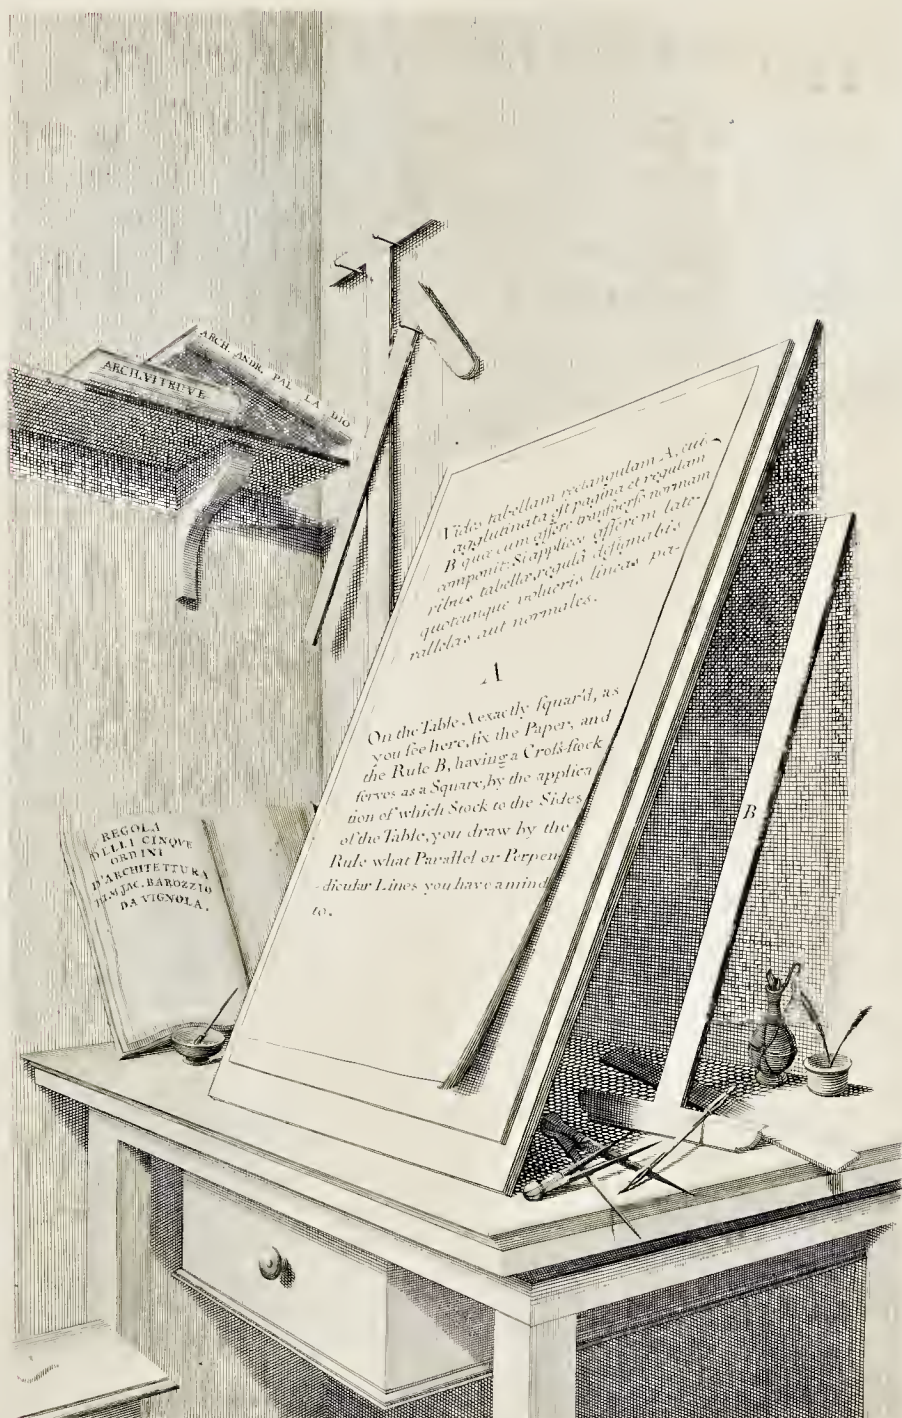 ARCH. ANDR. PAL LA DIO
ARCH. VITRUVE
Vides tabellam rectangulam A, cui
agglutinata est pagina et regulam
B quæ cum assere transverso normam
componit: Si applices asserem late-
ribus tabellæ, regulâ designabis
quotcunque volueris lineas pa-
rallelas aut normales.
A
On the Table A exactly squar'd, as
you see here, fix the Paper, and
the Rule B, having a Cross-stock
serves as a Square, by the applica
tion of which Stock to the Sides
of the Table, you draw by the
Rule what Parallel or Perpen
-dicular Lines you have a mind
to.
B
REGOLA
DELLI CINQVE
ORDINI
D'ARCHITETTURA
DI M. JAC. BAROZZIO
DA VIGNOLA.